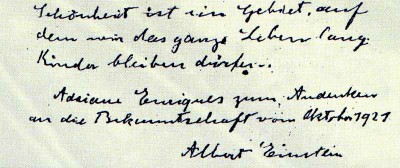 Schönheit ist ein Gebiet, auf
dem wir das ganze Leben lang
Kinder bleiben dürfen.
Adriane Enriques zum Andenken
an die Bekanntschaft vom Oktober 1921
Albert Einstein